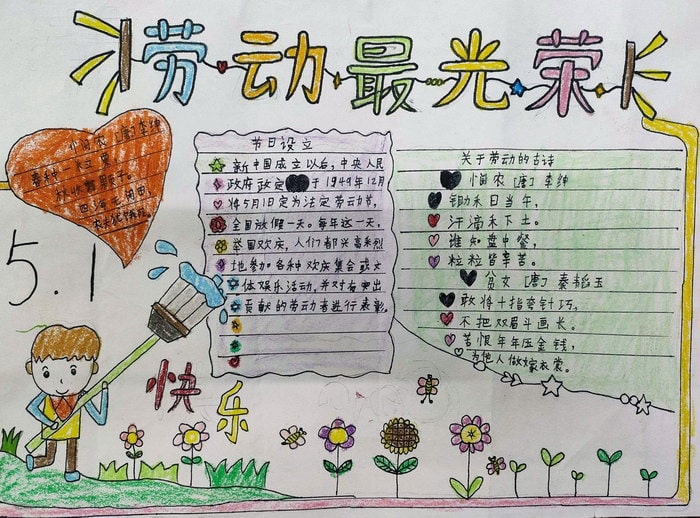 劳动最光荣
悯农 [唐] 李绅
春种一粒粟,
秋收万颗子。
四海无闲田,
农夫犹饿死。
5.1
快乐
节日设立
新中国成立以后,中央人民
政府政定于1949年12月
将5月1日定为法定劳动节,
全国放假一天。每年这一天,
举国欢庆,人们都兴高彩烈
地参加各种欢庆集会或文
体娱乐活动,并对有突出
贡献的劳动者进行表彰。
关于劳动的古诗
悯农 [唐] 李绅
锄禾日当午,
汗滴禾下土。
谁知盘中餐,
粒粒皆辛苦。
贫女 [唐] 秦韬玉
敢将十指夸针巧,
不把双眉斗画长。
苦恨年年压金钱,
为他人做嫁衣裳。